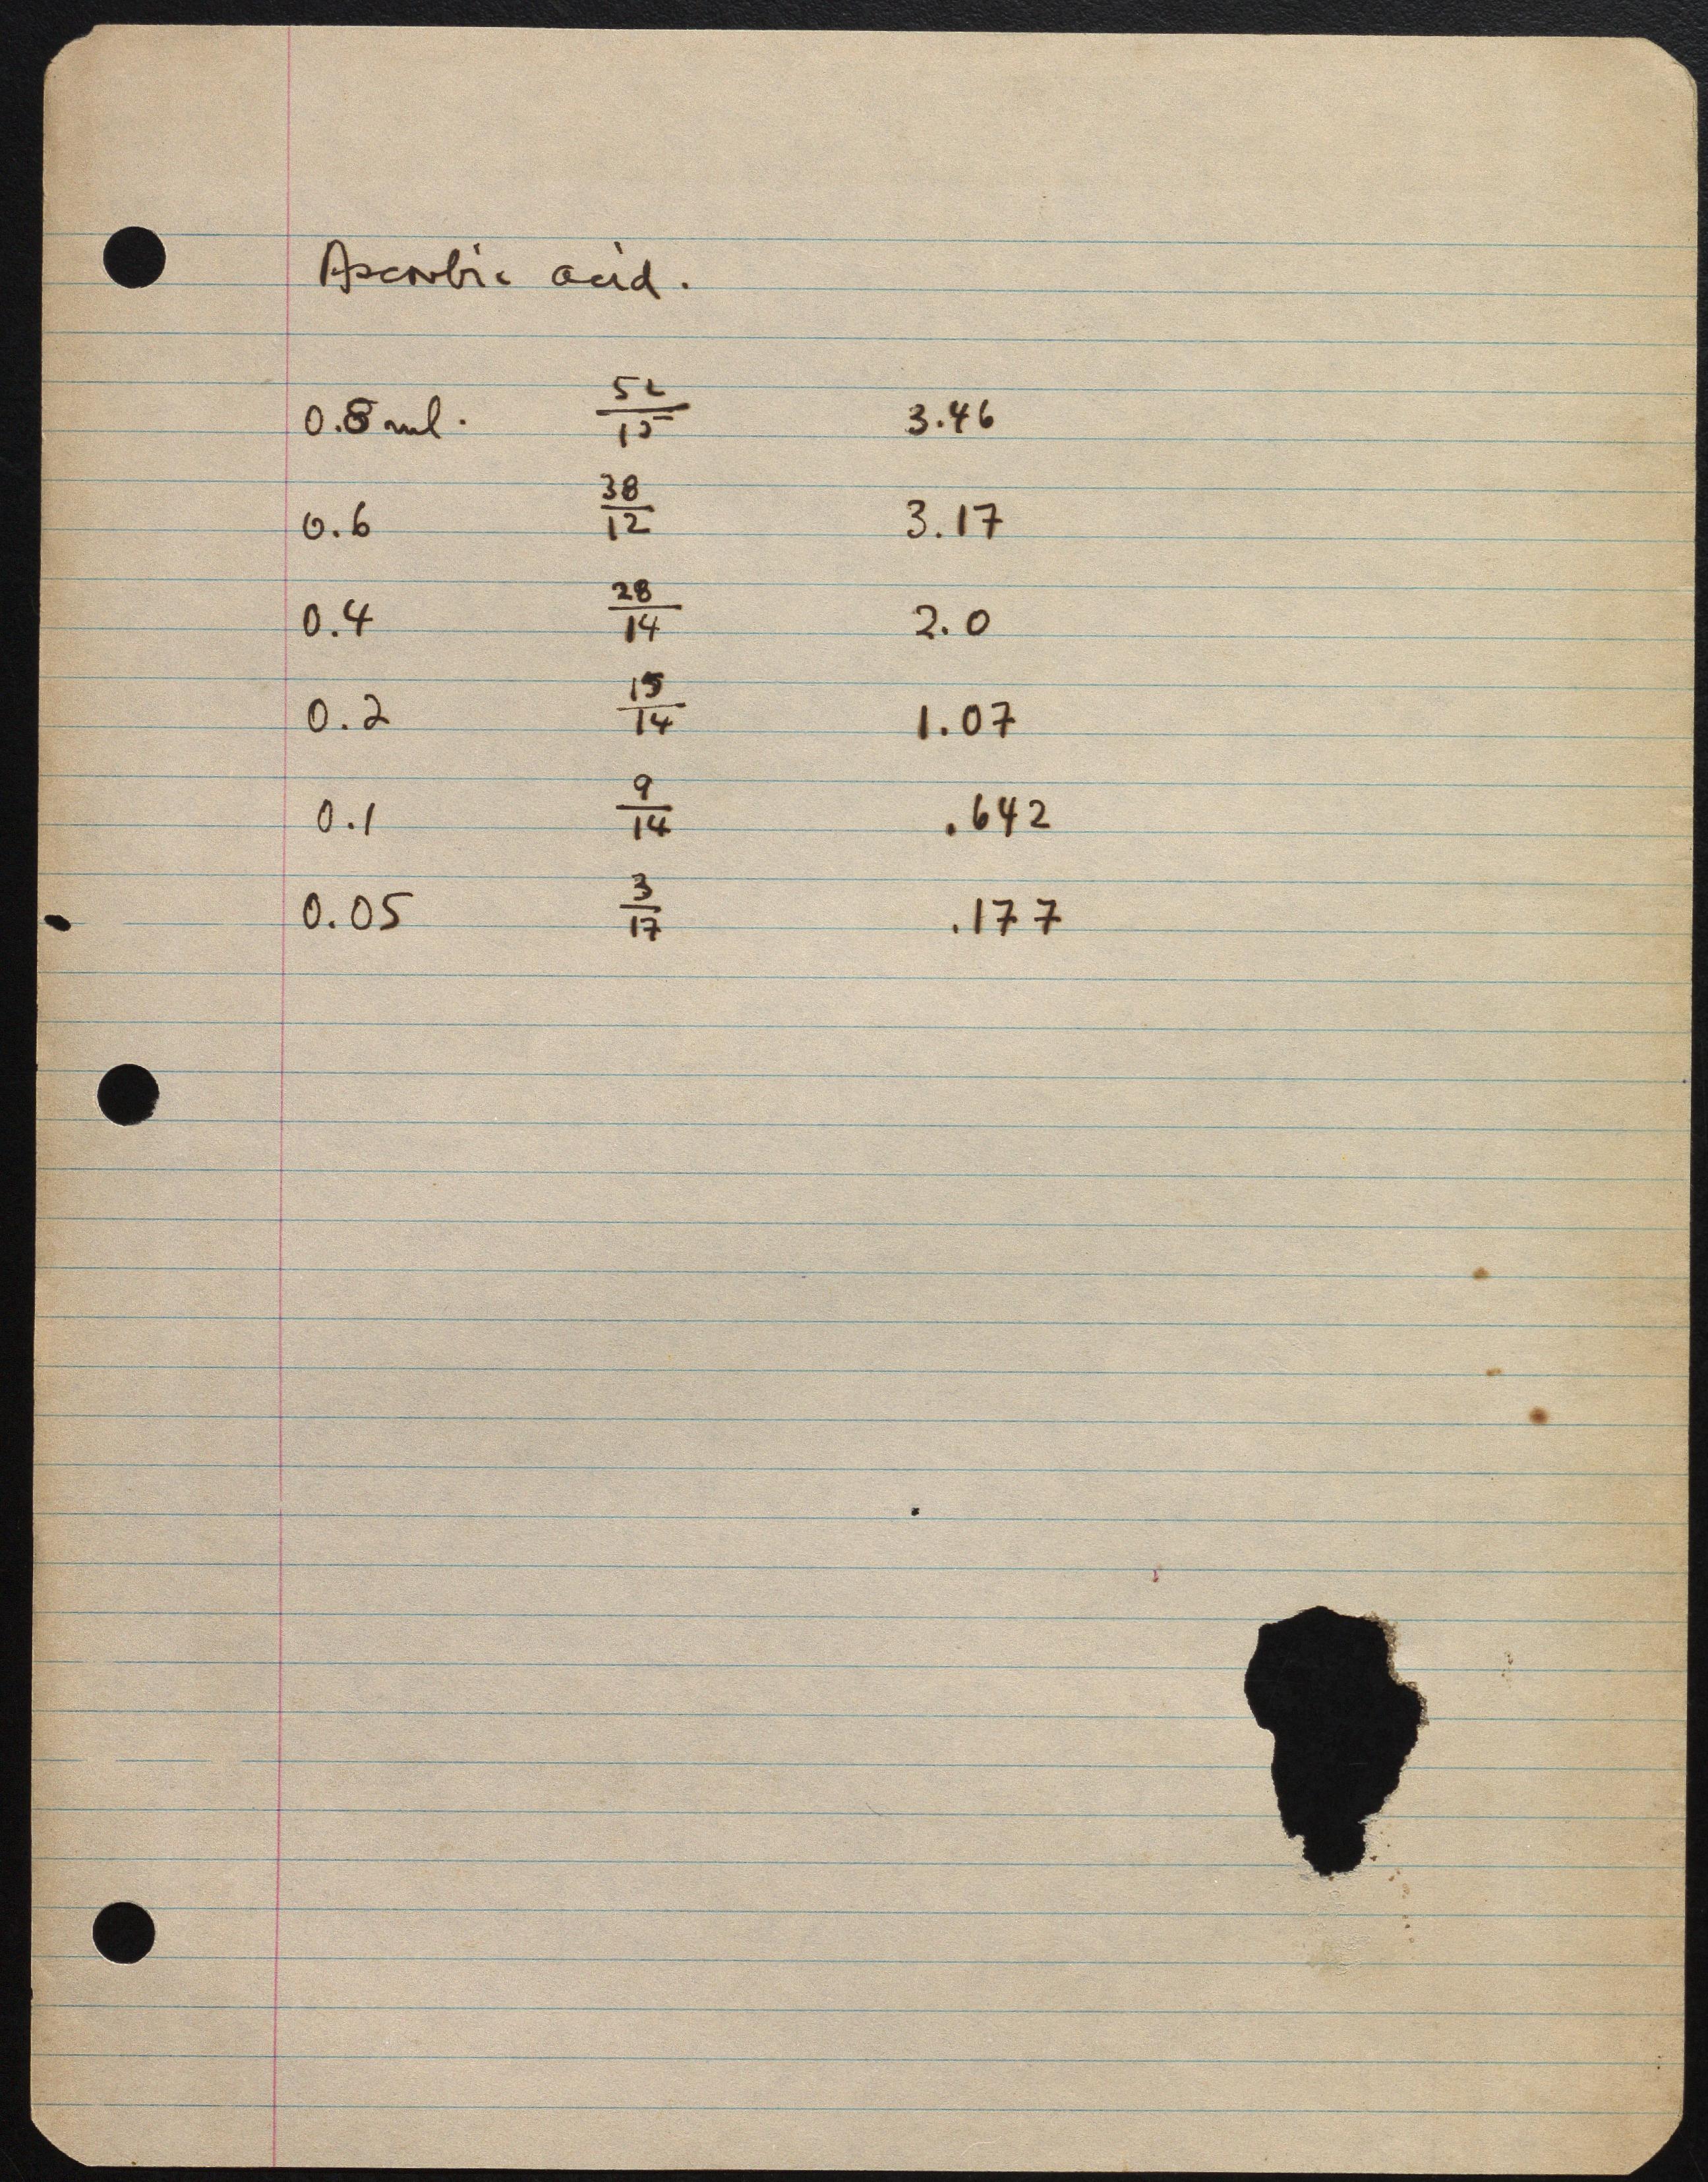 Ascorbic acid.
0.8 ml. 52/15 3.46
0.6 38/12 3.17
0.4 28/14 2.0
0.2 15/14 1.07
0.1 9/14 .642
0.05 3/17 .177